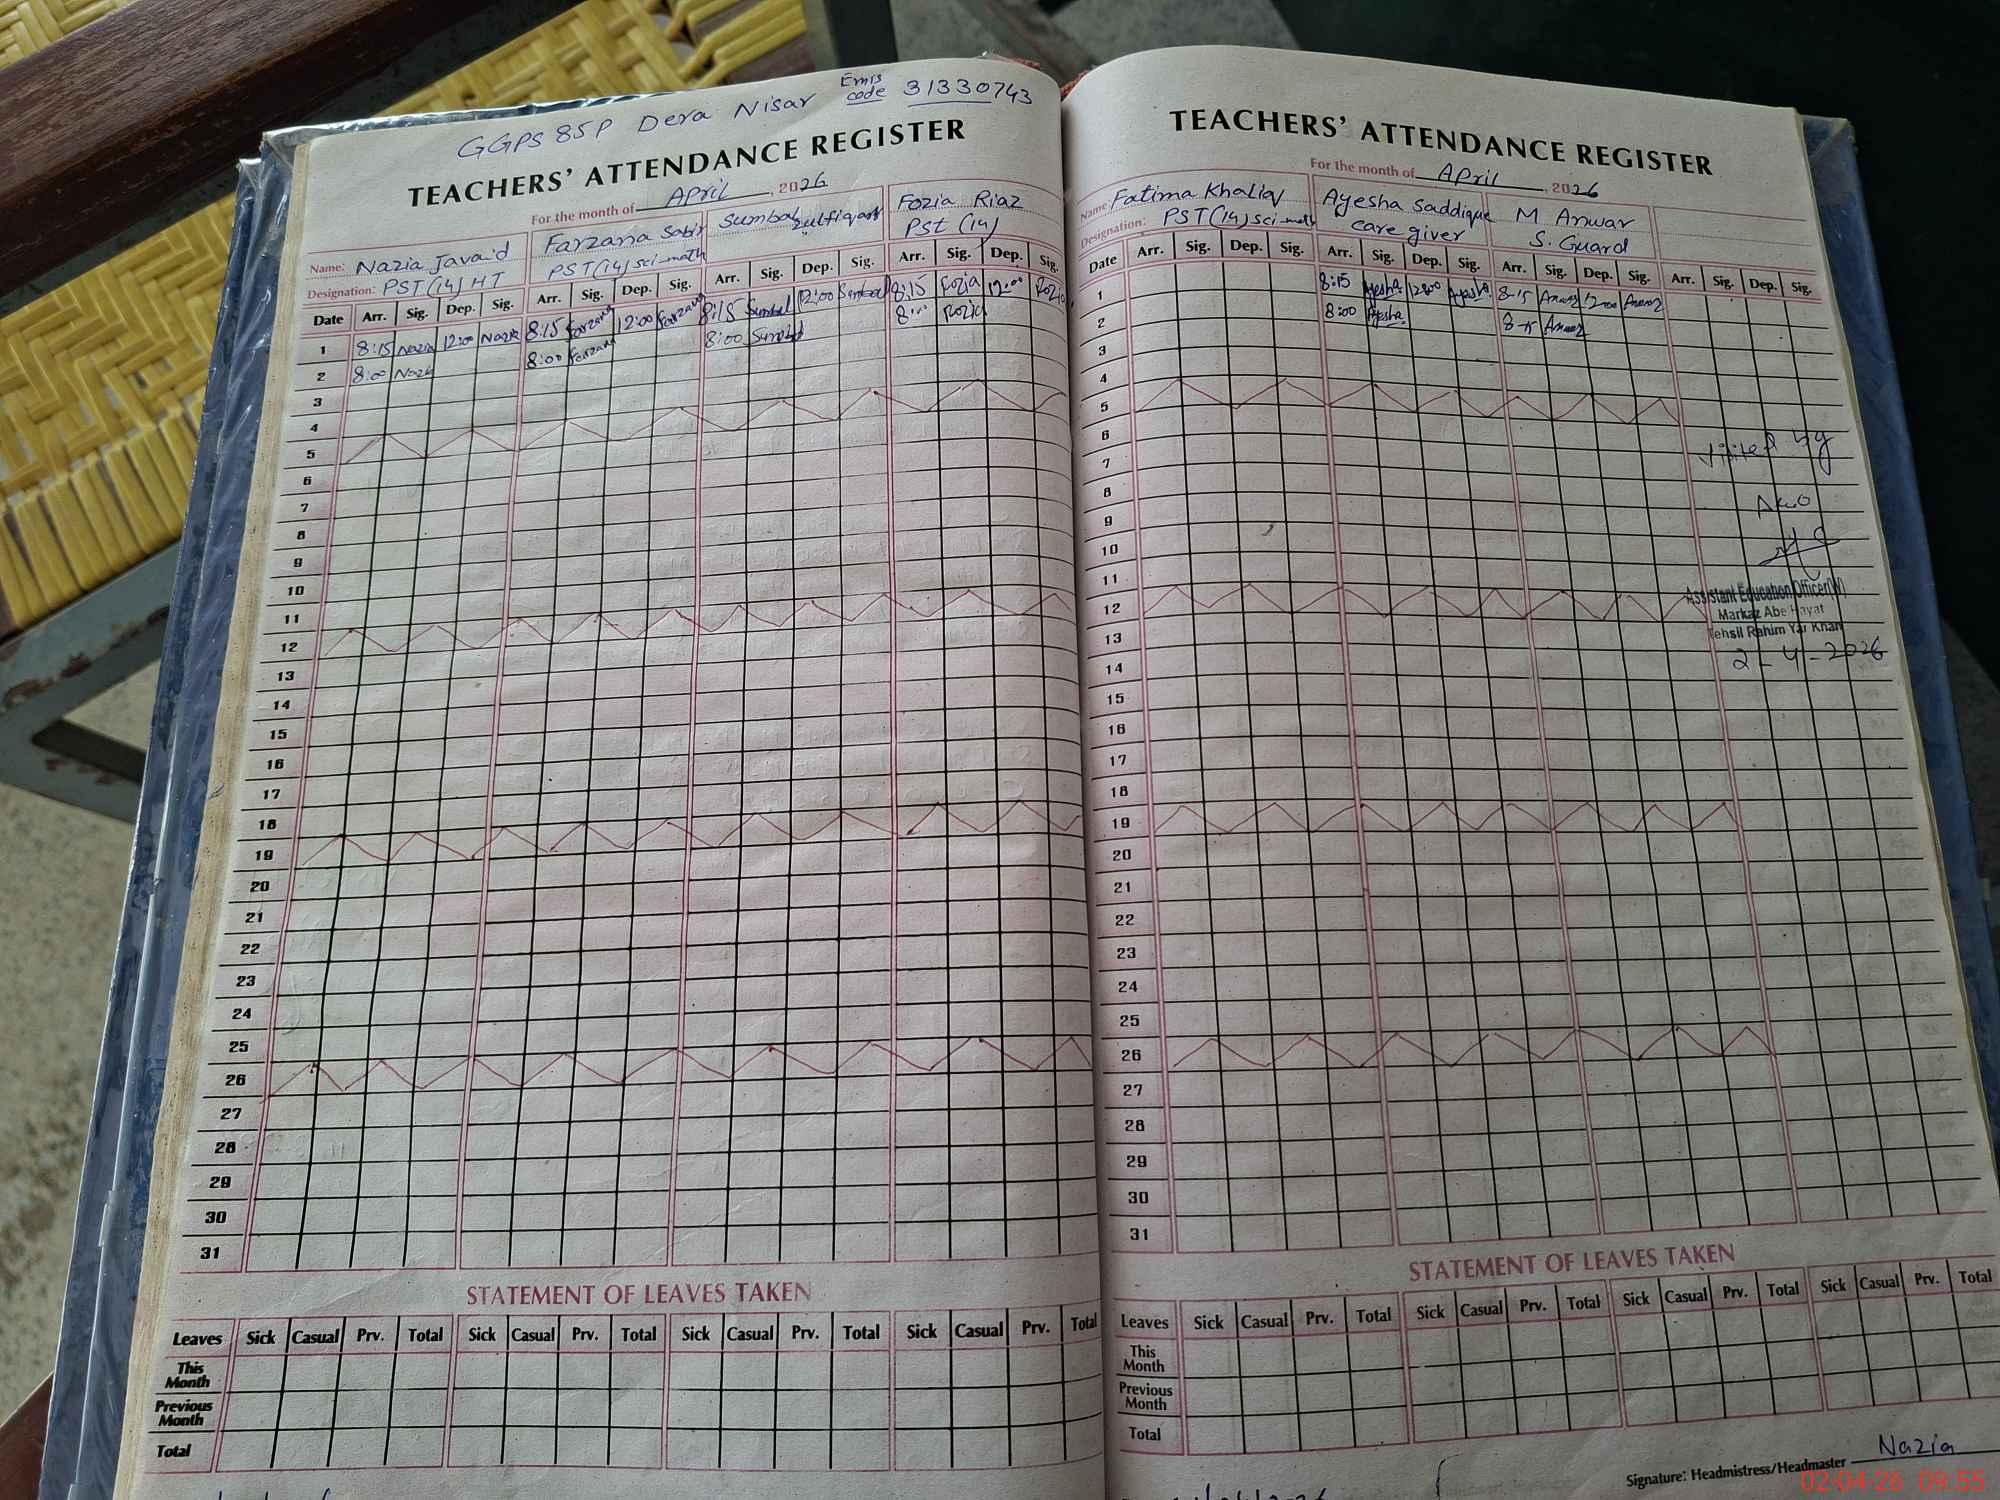 GGPS 85P Dera Nisar Emis code 31330743
TEACHERS' ATTENDANCE REGISTER
For the month of April, 2026
Name: Nazia Javaid Farzana Sabir Sumbal Zulfiqar Fozia Riaz
Designation: PST(14) HT PST(14) sci-math PST (14)
Date Arr. Sig. Dep. Sig. Arr. Sig. Dep. Sig. Arr. Sig. Dep. Sig. Arr. Sig. Dep. Sig.
1 8:15 Nazia 12:00 Nazia 8:15 Farzana 12:00 Farzana 8:15 Sumbal 12:00 Sumbal 8:15 Fozia 12:00 Fozia
2 8:00 Nazia 8:00 Farzana 8:00 Sumbal 8:00 Fozia
3
4
5
6
7
8
9
10
11
12
13
14
15
16
17
18
19
20
21
22
23
24
25
26
27
28
29
30
31
STATEMENT OF LEAVES TAKEN
Leaves Sick Casual Prv. Total Sick Casual Prv. Total Sick Casual Prv. Total Sick Casual Prv. Total
This Month
Previous Month
Total
TEACHERS' ATTENDANCE REGISTER
For the month of April, 2026
Name: Fatima Khaliq Ayesha Saddique M Anwar
Designation: PST(14) sci-math care giver S. Guard
Date Arr. Sig. Dep. Sig. Arr. Sig. Dep. Sig. Arr. Sig. Dep. Sig. Arr. Sig. Dep. Sig.
1 8:15 Ayesha 12:00 Ayesha 8-15 Anwar 12:00 Anwar
2 8:00 Ayesha 8-15 Anwar
3
4
5
6
7
8
9
10
11
12
13
14
15
16
17
18
19
20
21
22
23
24
25
26
27
28
29
30
31
visited by
AEO
Assistant Education Officer(W)
Markaz Abe Hayat
Tehsil Rahim Yar Khan
2-4-2026
STATEMENT OF LEAVES TAKEN
Leaves Sick Casual Prv. Total Sick Casual Prv. Total Sick Casual Prv. Total Sick Casual Prv. Total
This Month
Previous Month
Total
Signature: Headmistress/Headmaster Nazia
02-04-26 09:55